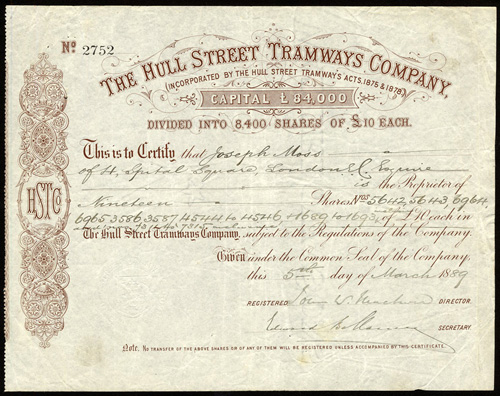 Nº 2752
THE HULL STREET TRAMWAYS COMPANY,
(INCORPORATED BY THE HULL STREET TRAMWAYS ACTS, 1875 & 1878)
CAPITAL £84,000
DIVIDED INTO 8,400 SHARES OF £10 EACH.
This is to Certify that Joseph Moss
of 4 Spital Square, London E.C. Esquire
is the Proprietor of
Nineteen Shares Nos 5642, 5643, 6964
6965 3586 3587 4544 to 4546 1689 to 1693, of £10 each in
The Hull Street Tramways Company, subject to the Regulations of the Company.
Given under the Common Seal of the Company,
this 5th day of March 1889
REGISTERED DIRECTOR.
SECRETARY.
Note. NO TRANSFER OF THE ABOVE SHARES OR OF ANY OF THEM WILL BE REGISTERED UNLESS ACCOMPANIED BY THIS CERTIFICATE.
HSTCo